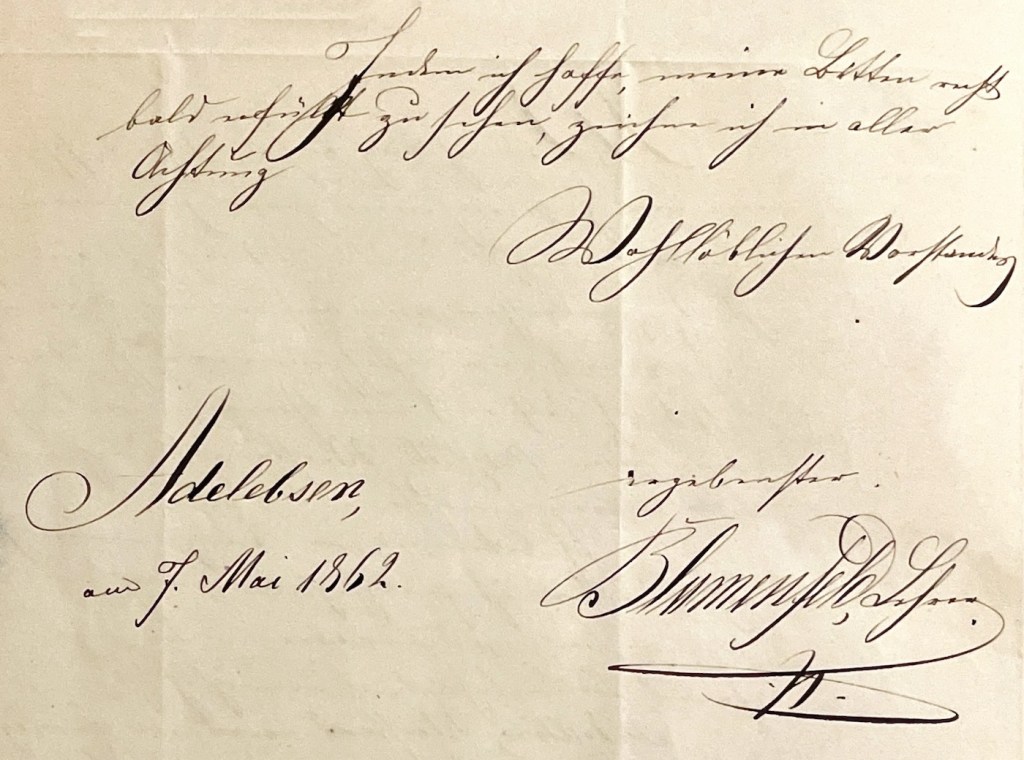 Indem ich hoffe, meine Bitten recht
bald erfüllt zu sehen, zeichne ich in aller
Achtung
Wohllöblichen Vorstandes
Adelebsen,
am 7. Mai 1862.
ergebenster
Blumenfeld, Lehrer.